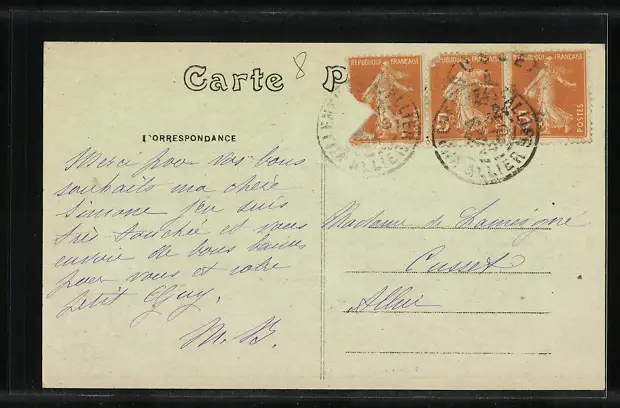 Carte P
8
REPUBLIQUE FRANÇAISE
REPUBLIQUE FRANÇAISE
REPUBLIQUE FRANÇAISE
5
5
POSTES
ALLIER
ALLIER
CORRESPONDANCE
Merci pour vos bons
souhaits ma chère
Simone j'en suis
très touchée et vous
envoie de bons
pour vous et votre
petit Guy.
M. B.
Madame de
Cusset
Allier